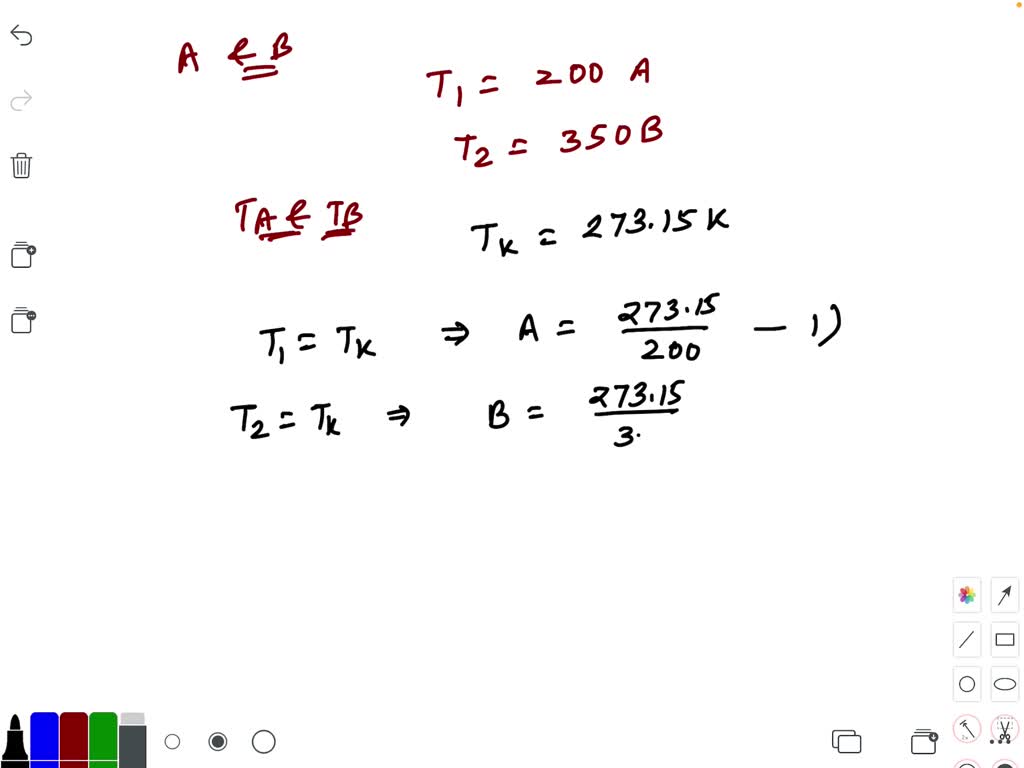 A & B
T1 = 200 A
T2 = 350 B
TA & TB
TK = 273.15 K
T1 = TK ⇒ A = 273.15/200 — 1)
T2 = TK ⇒ B = 273.15/3.